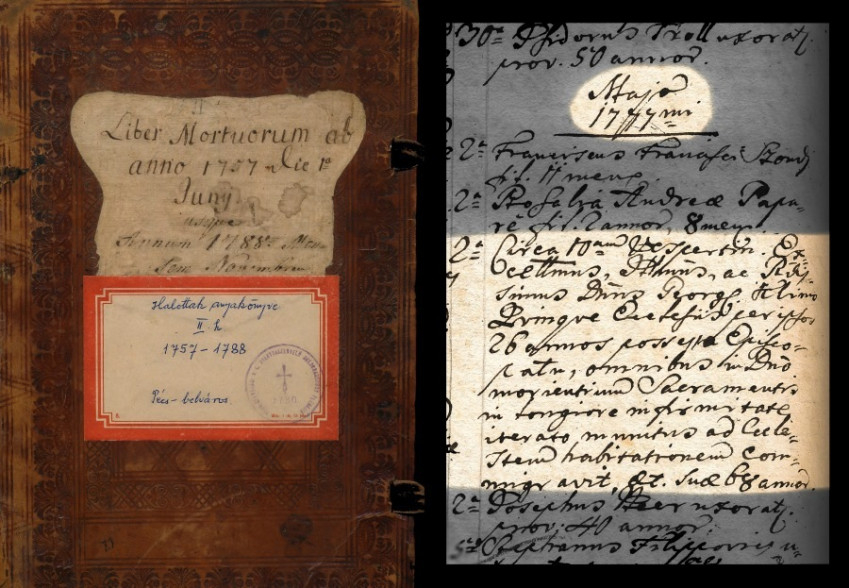 Liber Mortuorum ab
anno 1757 Die 1ª
Junÿ
usque
Annum 1788 Men
sem Novembrem
Halottak anyakönyve
II. k
1757-1788
Pécs-belváros
30ª Isidorus Troll uxorat,
prov. 50 annor.
Majo
1777mi
2ª Franciscus Francisci
fil. 11 mens.
2ª Rosalia Andreæ Papa-
fil. 2 annor, 8 mens.
2ª Circa 10am Vespertin. Ex-
cellmus, Illmus, ac Rdis-
simus Dnus Georg. Klimo
Quinque Ecclesiis per ipsos
26 annos possesso Episco-
patu, omnibus in Dno
morientium Sacramentis
in longiore infirmitate
iterato munitus ad Cæle-
stem habitationem com-
migravit, æt. suæ 68 annor.
2ª Josephus uxorat,
prov. 40 annor.
Stephanus